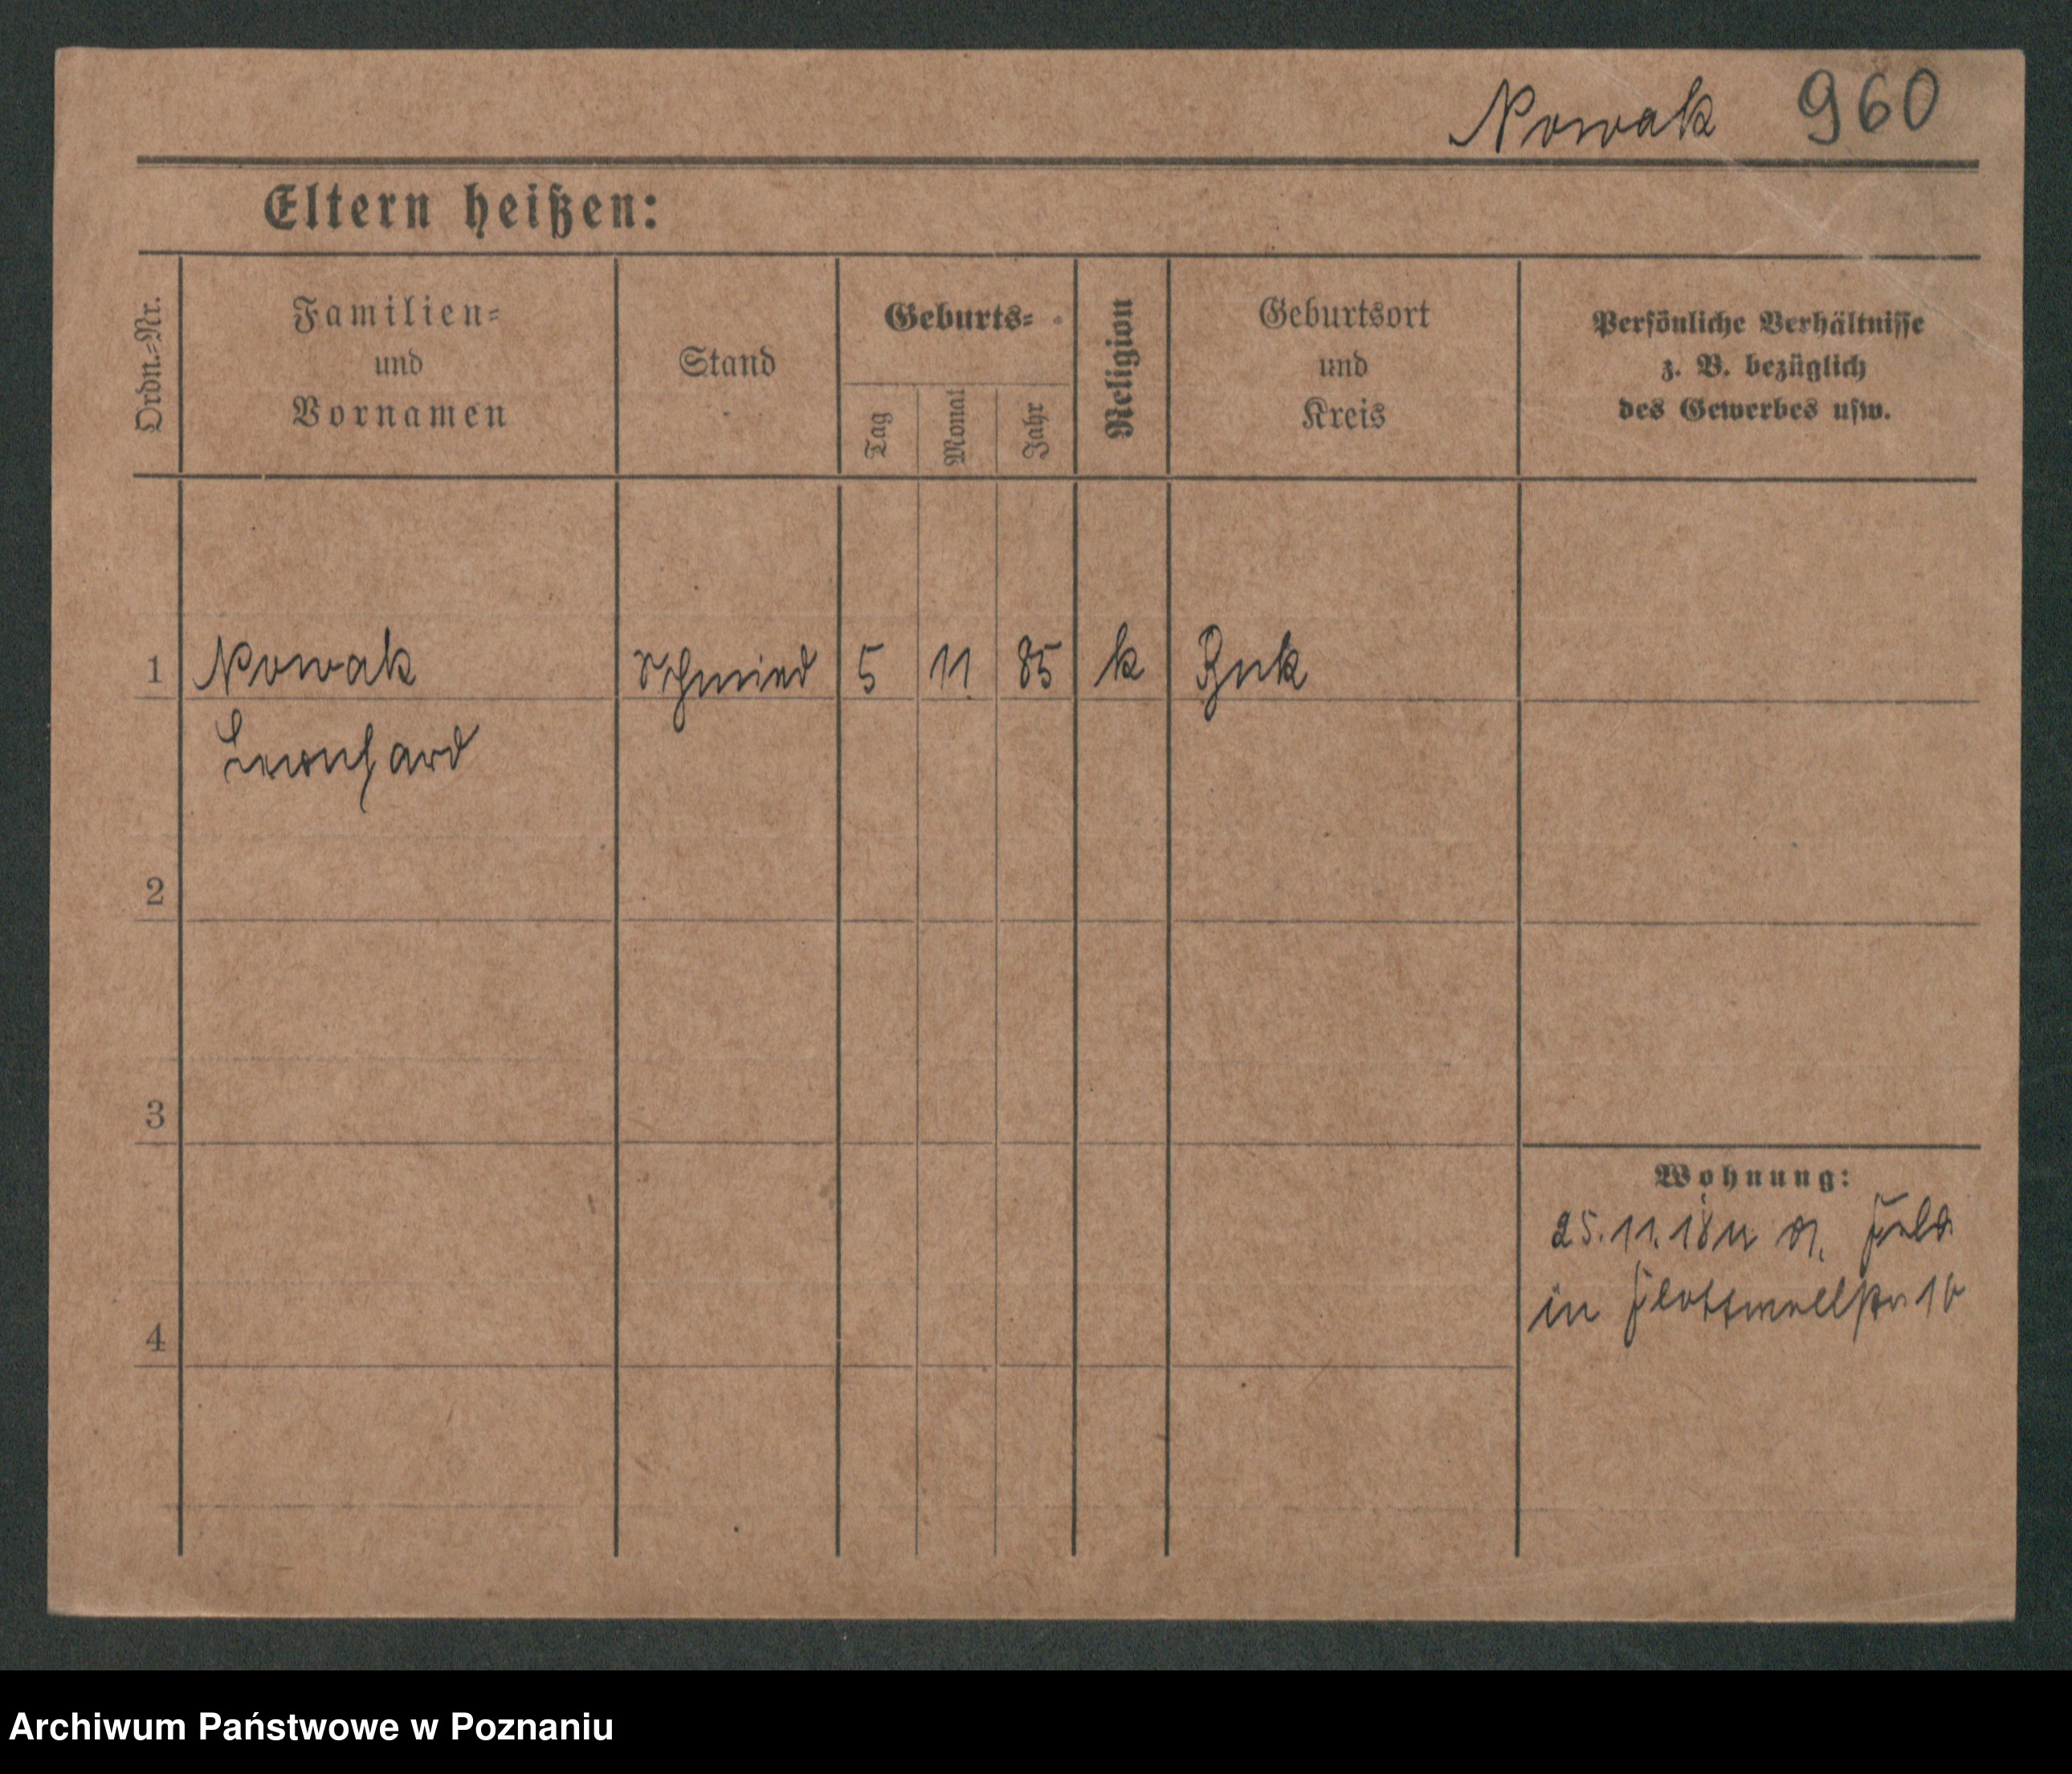 Nowak 960
Eltern heißen:
Ordn.-Nr.
Familien- und Vornamen
Stand
Geburts-
Tag
Monat
Jahr
Religion
Geburtsort und Kreis
Persönliche Verhältnisse
z. B. bezüglich
des Gewerbes usw.
1 Nowak Schmied 5 11 85 k Buk
Leonhard
2
3
Wohnung:
25.11.18 Feld
in Flottwellstr 16
4
Archiwum Państwowe w Poznaniu